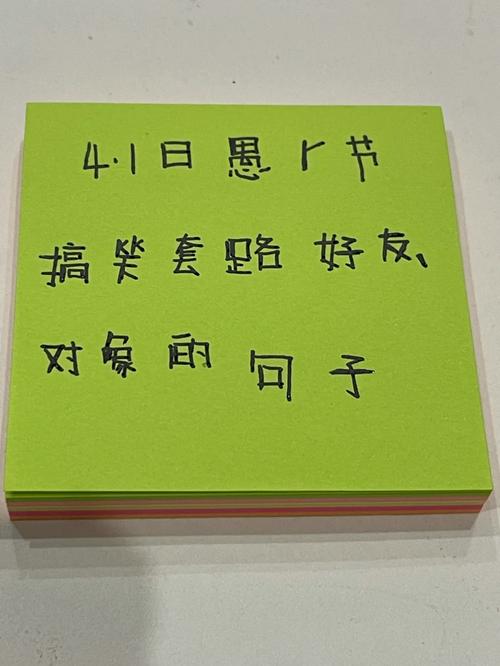 4.1日愚人节
搞笑套路好友、
对象的句子